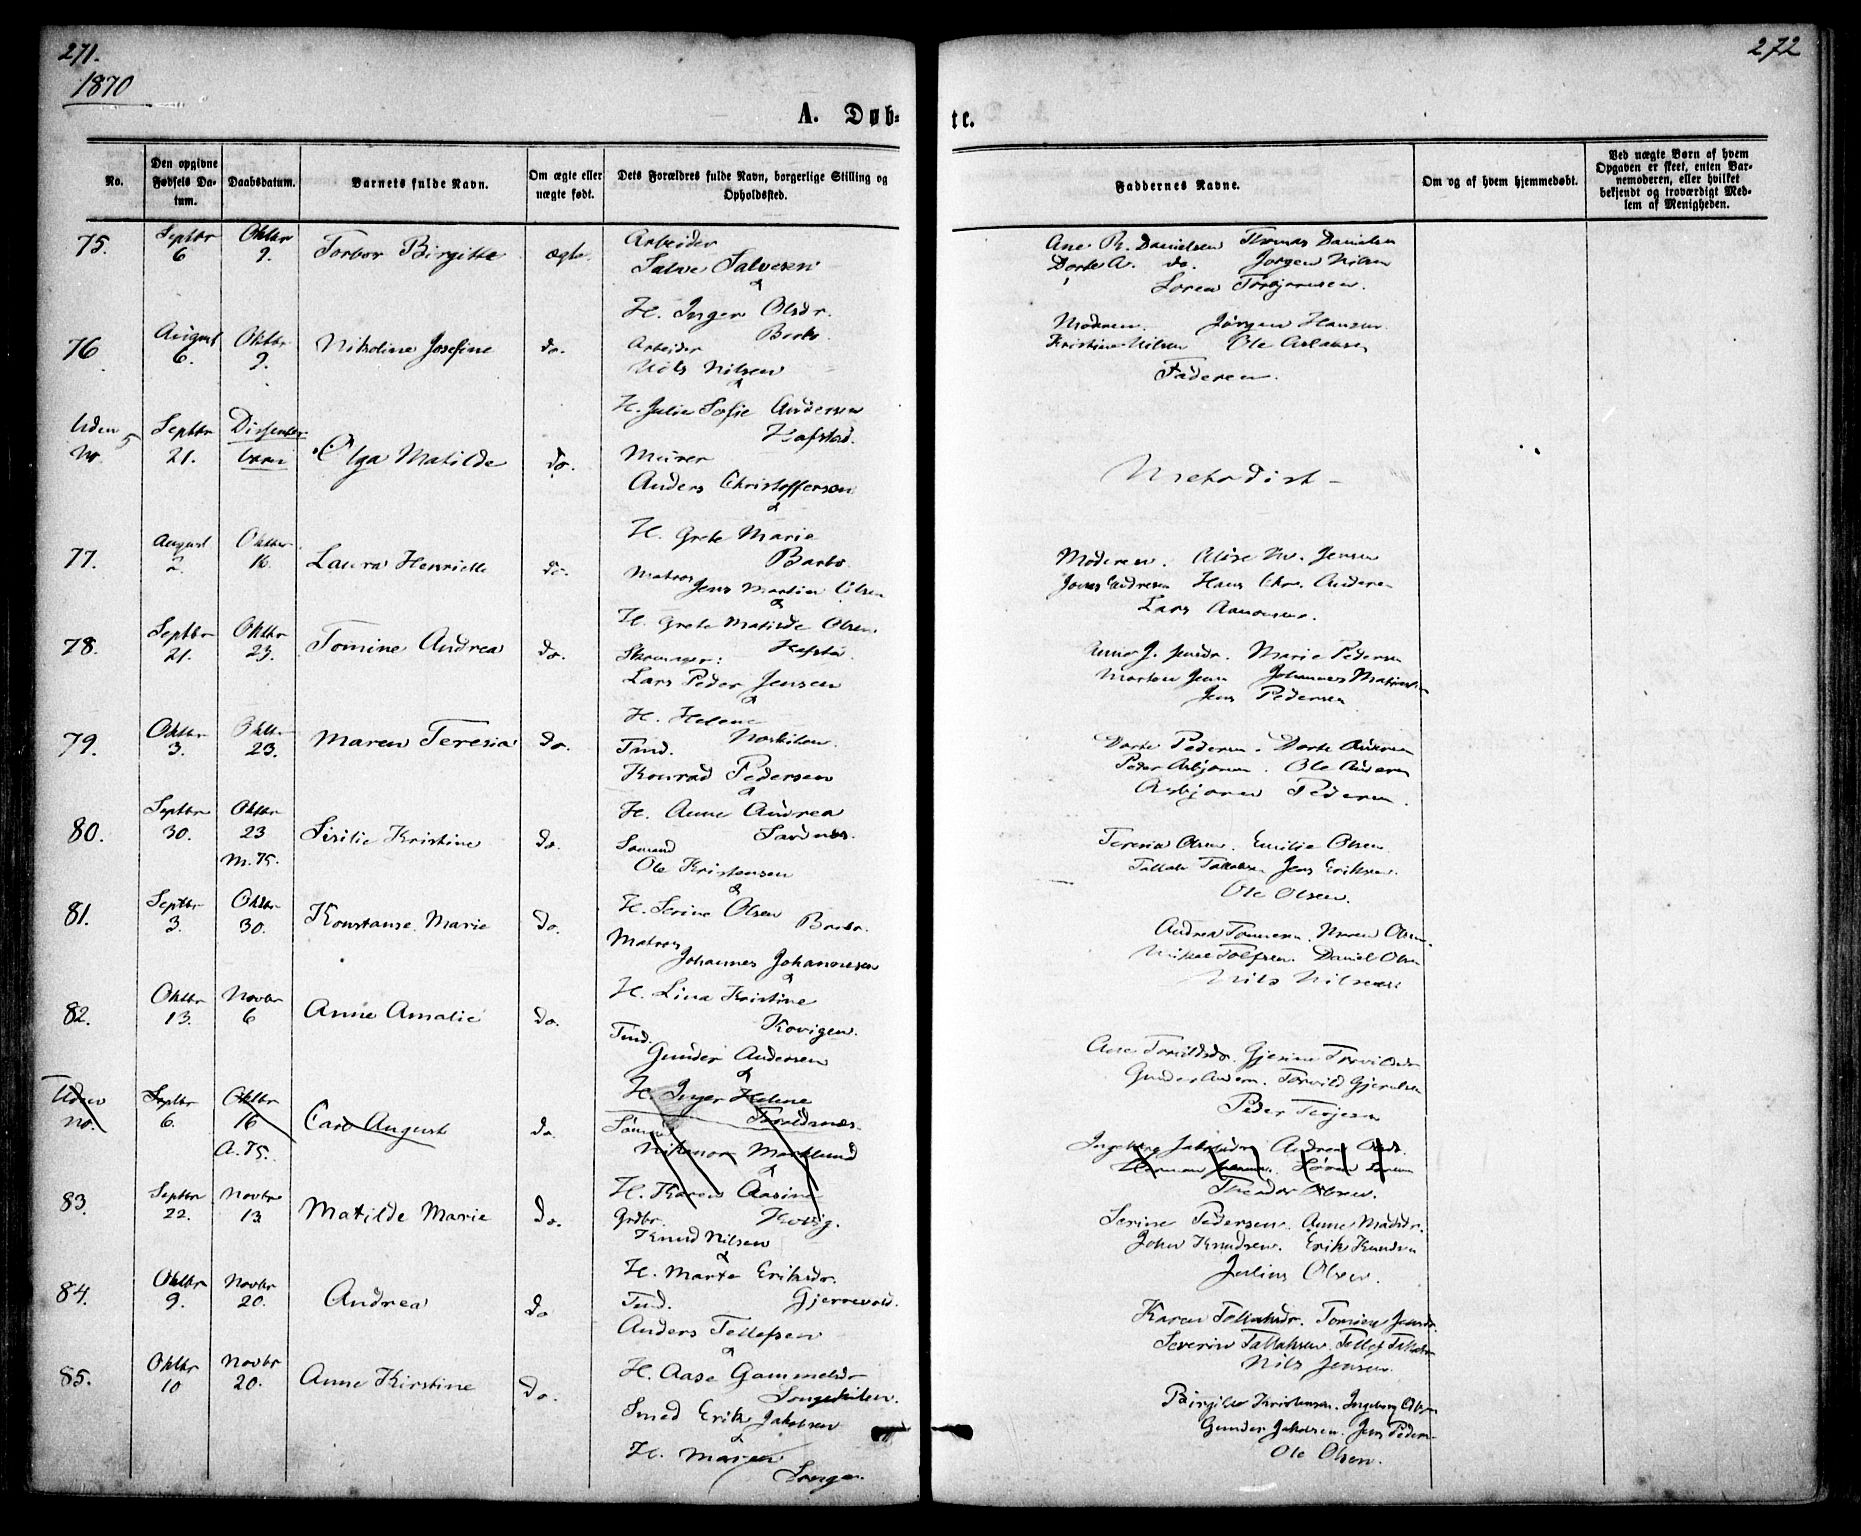 271.
272
1870
A. Døb-
te.
No.
Den opgivne Fødsels Da-tum.
Daabsdatum.
Barnets fulde Navn.
Om ægte eller uægte født.
Dets Forældres fulde Navn, borgerlige Stilling og Opholdssted.
Faddernes Navne.
Om og af hvem hjemmedøbt.
Ved uægte Børn af hvem Opgaven er skeet, enten Bar-nemoderen, eller hvilket bekjendt og troværdigt Med-lem af Menigheden.
75. Septbr 6 Oktbr 9. Torbor Birgitte ægte.
Arbeider
Salve Salvesen
&
H. Inger Olsdr.
Barbo
Ane Danielsen Thomas Danielsen
Dorte A. do. Jørgen Nilsen
Søren Torbjørnsen.
76 August 6. Oktbr 9. Nikoline Josefine do.
Arbeider
Nils Nilsen
&
H. Julie Sofie Andersen
Hafstad.
Moderen. Jørgen Hansen
Kristine Nilsen Ole Aslaksen
Faderen.
Uden No. Septbr 21. Dissenter barn Olga Matilde do.
Murer
Anders Christoffersen
&
H. Grete Marie
Barbo
Methodist –
77. August 2. Oktbr 16. Laura Henriette do.
Matros Jens Martin Olsen
&
H. Grete Matilde Olsen.
Hafstad.
Moderen. Jensen
Jonas Andresen Hans Chr. Andersen
Lars Aanonsen.
78. Septbr 21. Oktbr 23. Tomine Andrea do.
Skomager:
Lars Peder Jensen
&
H. Helene
Noskilen.
Anne J. Jensdr. Marie Pedersen
Morten Jensen Johannes
Jens Pedersen
79. Oktbr 3. Oktbr 23. Maren Teresia do.
Tmd.
Konrad Pedersen
&
H. Anne Andrea
Sandnes.
Dorte Pedersen. Dorte Andersen
Peder Asbjørnsen. Ole Andersen
Asbjørn Pedersen.
80. Septbr 30. Oktbr 23 M. 75. Sisilie Kristine do.
Sømand
Ole Kristensen
&
H. Serine Olsen
Barbo.
Teresia Olsen. Emilie Olsen
Tallak Tallaksen Jens Eriksen.
Ole Olsen.
81. Septbr 3. Oktbr 30. Konstanse Marie do.
Matros
Johannes Johannesen
&
H. Lina Kristine
Kovigen.
Andrea Tønnesen. Maren Olsen.
Mikal Tolfsen. Daniel Olsen
Nils Nilsen
82. Oktbr 13. Novbr 6 Anne Amalie do.
Tmd.
Gunder Andersen
&
H. Inger Helene
Torvildsdr. Gjerine Torvildsdr
Gunder Andersen. Torvild Gjerulsen
Peder Terjesen
Uden No. Septbr 6. Oktbr 16 A. 75. Carl August do.
Marklund
&
H. Karen Aasine
Kovig.
Ingeborg Andrea
Herman Søren
Theodor Olsen.
83. Septbr 22. Novbr 13 Matilde Marie do.
Grdbr.
Knud Nilsen
&
H. Marte Eriksdr.
Gjerrevold.
Serine Pedersen. Anne Madsdr.
John Knudsen. Erik Knudsen
Julius Olsen.
84. Oktbr 9. Novbr 20. Andrea do
Tmd.
Anders Tellefsen
&
H. Aase Gammelsdr
Songekilen.
Karen Tallaksdr. Tomine Jensdr.
Severin Tallaksen. Tellef Tallaksen
Nils Jensen.
85. Oktbr 10 Novbr 20. Anne Kirstine do.
Smed Erik Jakobsen
&
H. Maren
Songe.
Birgitte Kristensen. Ingeborg Olsen
Gunder Jakobsen. Jens Pedersen
Ole Olsen.